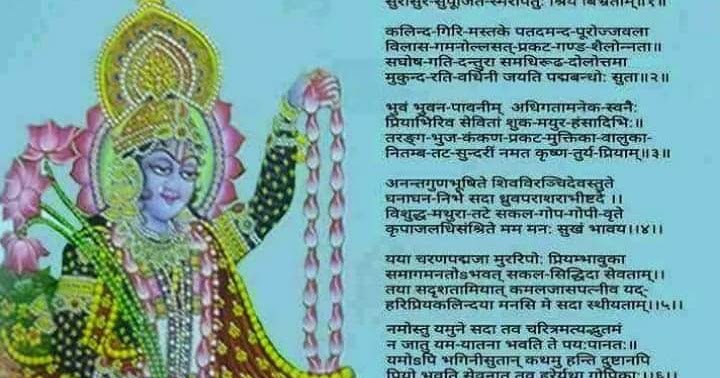 सुरासुर-सुपूजित-स्मरपितुः श्रियं बिभ्रताम्॥१॥
कलिन्द-गिरि-मस्तके पतदमन्द-पूरोज्जवला
विलास-गमनोल्लसत्-प्रकट-गण्ड-शैलोन्नता॥
सघोष-गति-दन्तुरा समधिरूढ-दोलोत्तमा
मुकुन्द-रति-वर्धिनी जयति पद्मबन्धोः सुता॥२॥
भुवं भुवन-पावनीम् अधिगतामनेक-स्वनैः
प्रियाभिरिव सेवितां शुक-मयुर-हंसादिभिः॥
तरङ्ग-भुज-कंकण-प्रकट-मुक्तिका-वालुका-
नितम्ब-तट-सुन्दरीं नमत कृष्ण-तुर्य-प्रियाम्॥३॥
अनन्तगुणभूषिते शिवविरञ्चिदेवस्तुते
घनाघन-निभे सदा ध्रुवपराशराभीष्टदे ।।
विशुद्ध-मथुरा-तटे सकल-गोप-गोपी-वृते
कृपाजलधिसंश्रिते मम मनः सुखं भावय।।४।।
यया चरणपद्मजा मुररिपोः प्रियम्भावुका
समागमनतोsभवत् सकल-सिद्धिदा सेवताम्।।
तया सदृशतामियात् कमलजासपत्नीव यद्-
हरिप्रियकलिन्दया मनसि मे सदा स्थीयताम्।।५।।
नमोस्तु यमुने सदा तव चरित्रमत्यद्भुतमं
न जातु यम-यातना भवति ते पयःपानतः॥
यमोsपि भगिनीसुतान् कथमु हन्ति दुष्टानपि
प्रियो भवति सेवनात् तव हरेर्यथा गोपिकाः।।६।।